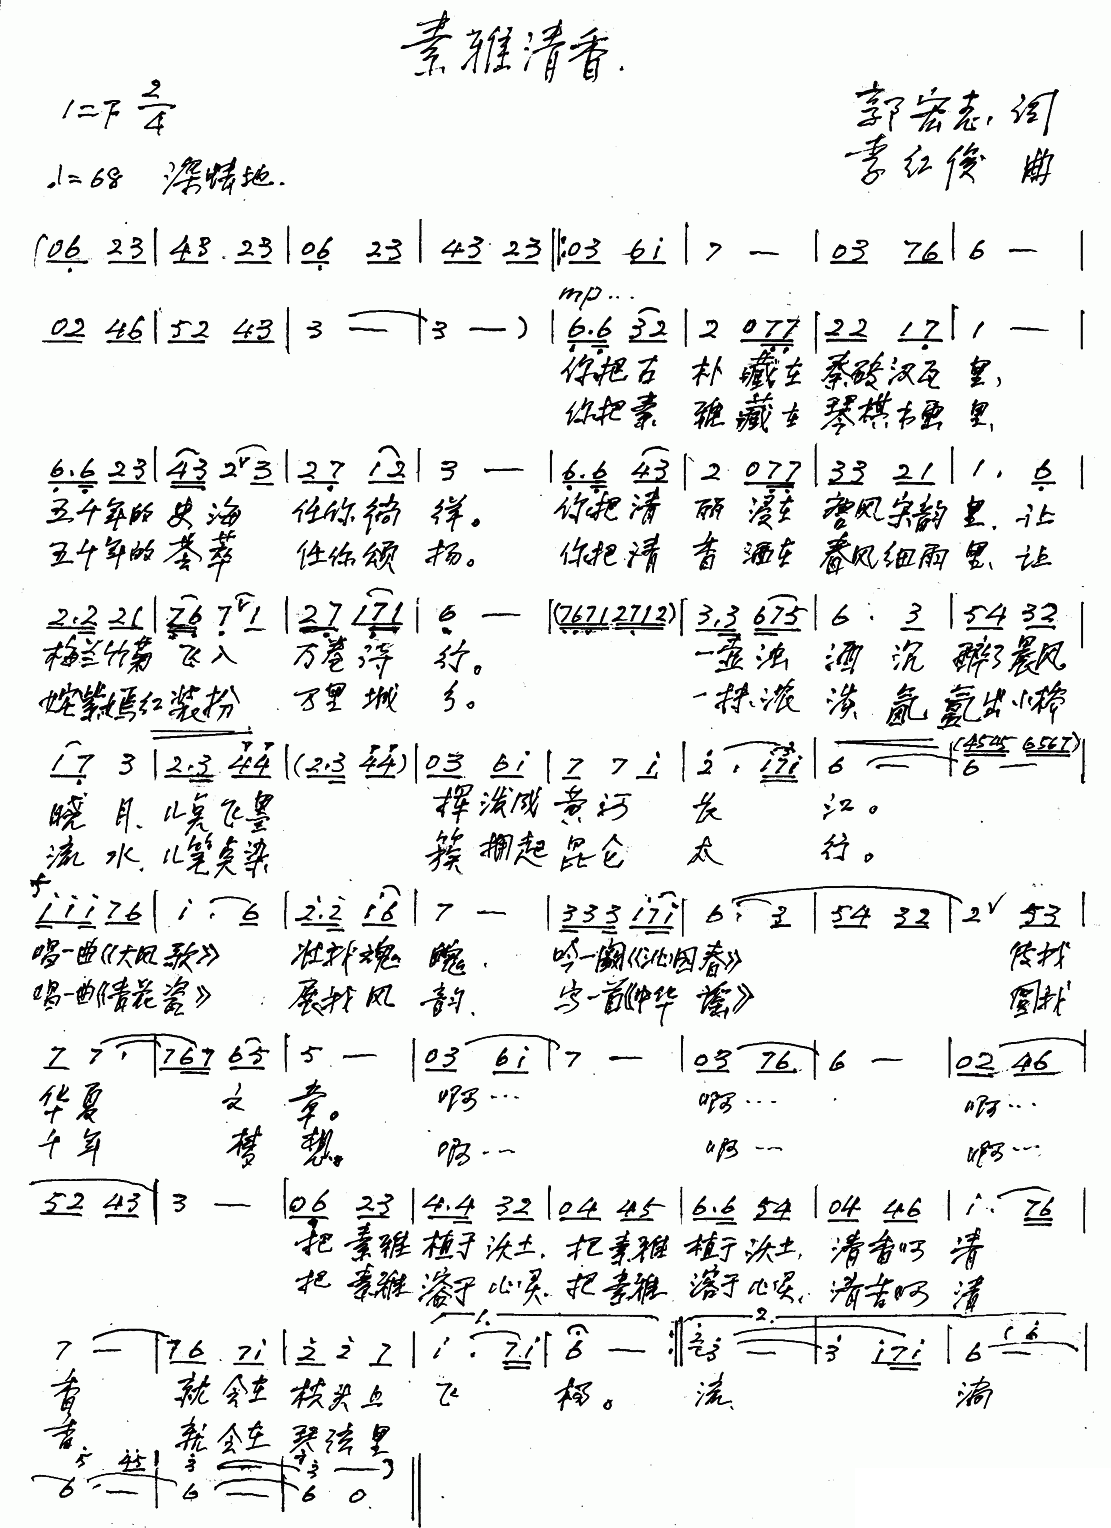 素雅清香.
1=F 2/4
郭宏志 词
♩=68 深情地.
李红俊 曲
(06 23 | 43 23 | 06 23 | 43 23 ‖: 03 6i | 7 — | 03 76 | 6 — |
mp...
02 46 | 52 43 | 3 — | 3 — ) | 6.6 32 | 2 077 | 22 17 | 1 — |
你把古 朴 藏在 秦砖汉瓦 里,
你把素 雅 藏在 琴棋书画 里,
6.6 23 | 43 2ˇ3 | 27 12 | 3 — | 6.6 43 | 2 077 | 33 21 | 1. 6 |
五千年的 史海 任你徜 徉。 你把清 丽 浸在 唐风宋韵 里、让
五千年的 荟萃 任你颂 扬。 你把清 香 洒在 春风细雨 里、让
2.2 21 | 76 7ˇ1 | 27 171 | 6 — | (76712712) | 3.3 675 | 6. 3 | 54 32 |
梅兰竹菊 飞入 万卷诗 行。 一壶浊 酒 沉 醉了晨风
姹紫嫣红 装扮 万里城 乡。 一抹浓 淡 氤 氲出小桥
i7 3 | 2.3 44 | (2.3 44) | 03 6i | 7 7 i | 2. i7i | 6 — | 6 — |
(4545 6567)
晓 月、 飞墨 挥 泼成 黄河 长 江。
流 水、 染 簇 拥起 昆仑 太 行。
f
iii76 | i. 6 | 2.2 i6 | 7 — | 333 i7i | 6. 3 | 54 32 | 2ˇ 53 |
唱一曲《大风 歌》 壮我魂 魄、 吟一阕《沁园 春》 我
唱一曲《青花 瓷》 展我风 韵、 写一首《中华 谣》 圆我
7 7. | 767 65 | 5 — | 03 6i | 7 — | 03 76 | 6 — | 02 46 |
华夏 文 章。 啊… 啊… 啊…
千年 梦 想。 啊… 啊… 啊…
52 43 | 3 — | 06 23 | 4.4 32 | 04 45 | 6.6 54 | 04 46 | i. 76 |
把 素雅 植于 沃土, 把 素雅 植于 沃土, 清 香啊 清
把 素雅 溶于 心灵, 把 素雅 溶于 心灵, 清 香啊 清
1. 2.
7 — | 76 7i | 2 2 7 | i. 7i | 6 — :‖ 3 — | 3 i7i | 6 — |
香 就 会在 枝头上 飞 扬。 流 淌
香 就 会在 琴弦里
6 — | 6 — | 6 0 ‖